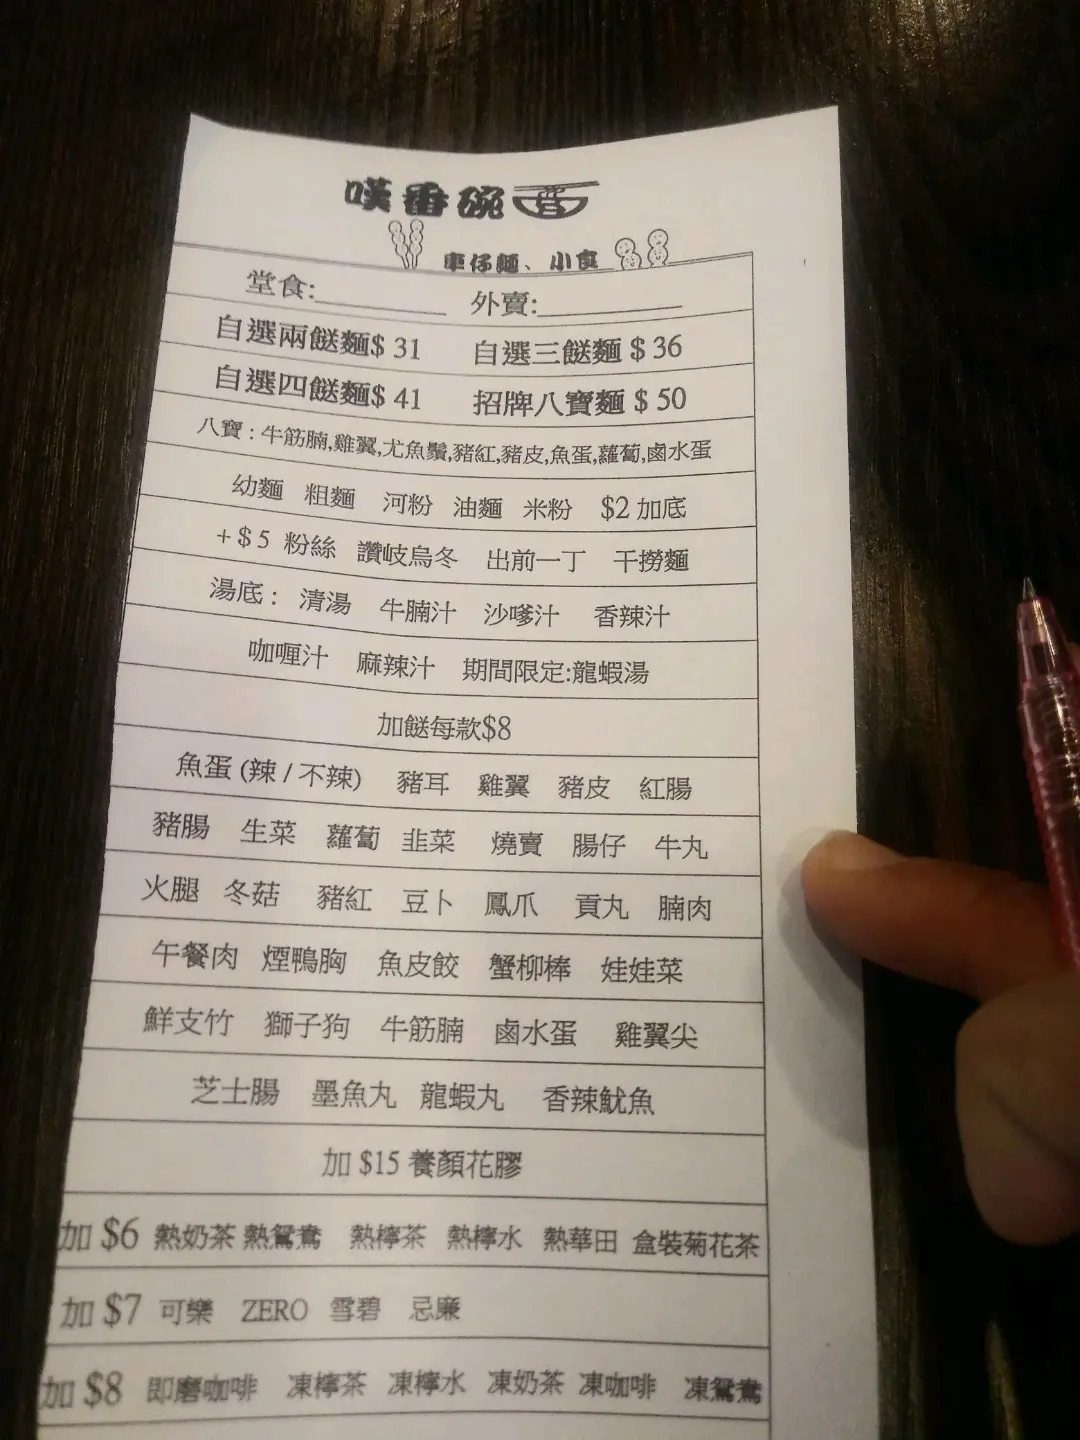 嘆番碗
車仔麵、小食
堂食:________ 外賣:________
自選兩餸麵$ 31 自選三餸麵 $ 36
自選四餸麵$ 41 招牌八寶麵 $ 50
八寶 : 牛筋腩,雞翼,尤魚鬚,豬紅,豬皮,魚蛋,蘿蔔,鹵水蛋
幼麵 粗麵 河粉 油麵 米粉 $2 加底
+ $ 5 粉絲 讚岐烏冬 出前一丁 干撈麵
湯底 : 清湯 牛腩汁 沙嗲汁 香辣汁
咖喱汁 麻辣汁 期間限定:龍蝦湯
加餸每款$8
魚蛋 (辣 / 不辣) 豬耳 雞翼 豬皮 紅腸
豬腸 生菜 蘿蔔 韭菜 燒賣 腸仔 牛丸
火腿 冬菇 豬紅 豆卜 鳳爪 貢丸 腩肉
午餐肉 煙鴨胸 魚皮餃 蟹柳棒 娃娃菜
鮮支竹 獅子狗 牛筋腩 鹵水蛋 雞翼尖
芝士腸 墨魚丸 龍蝦丸 香辣魷魚
加 $15 養顏花膠
加 $6 熱奶茶 熱鴛鴦 熱檸茶 熱檸水 熱華田 盒裝菊花茶
加 $7 可樂 ZERO 雪碧 忌廉
加 $8 即磨咖啡 凍檸茶 凍檸水 凍奶茶 凍咖啡 凍鴛鴦